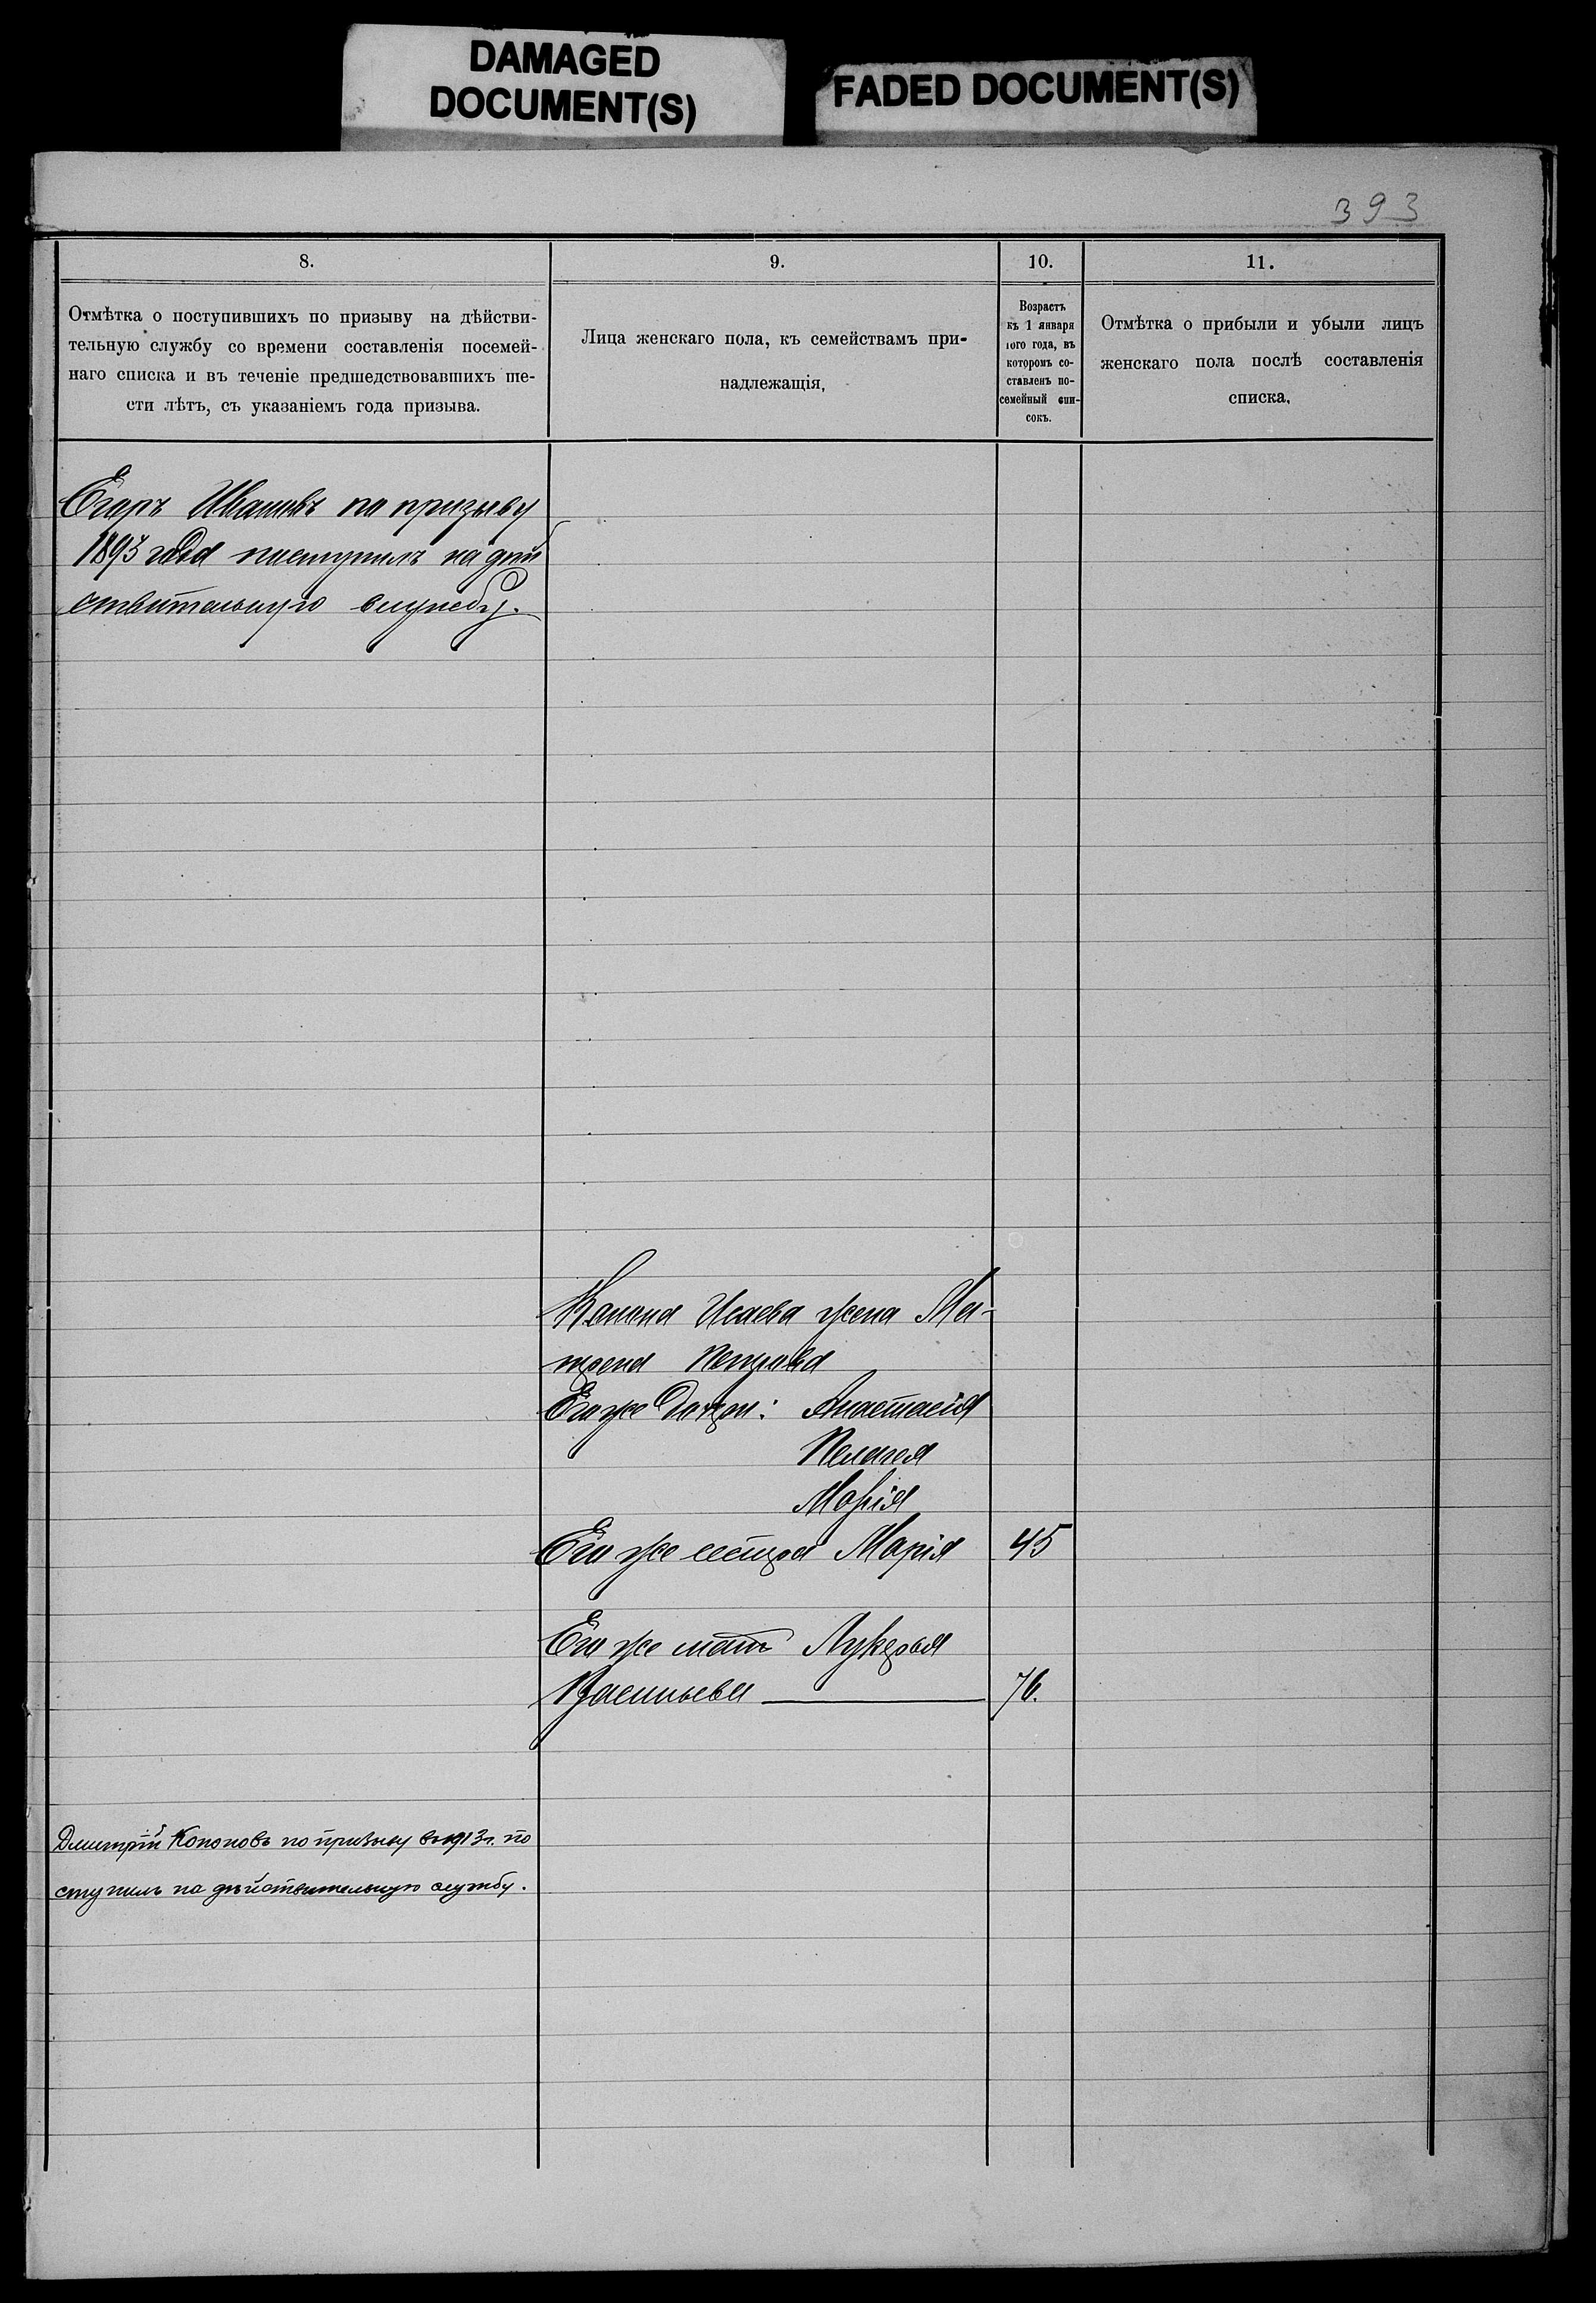 DAMAGED
DOCUMENT(S)
FADED DOCUMENT(S)
393
8.
9.
10.
11.
Отмѣтка о поступившихъ по призыву на дѣйстви-
тельную службу со времени составленія посемей-
наго списка и въ теченіе предшедствовавшихъ ше-
сти лѣтъ, съ указаніемъ года призыва.
Лица женскаго пола, къ семействамъ при-
надлежащія,
Возрастъ
къ 1 января
того года, въ
которомъ со-
ставленъ по-
семейный спи-
сокъ.
Отмѣтка о прибыли и убыли лицъ
женскаго пола послѣ составленія
списка,
Егоръ Ивановъ по призыву
1893 года поступилъ на дѣй
ствительную службу.
Конона Исаева жена Ма-
трена Петрова
Его же дочери: Анастасія
Пелагея
Марія
Его же сестра Марія 45
Его же мать Лукерья
Васильева 76.
Дмитрій Кононовъ по призыву въ 1913 г. по
ступилъ на дѣйствительную службу.